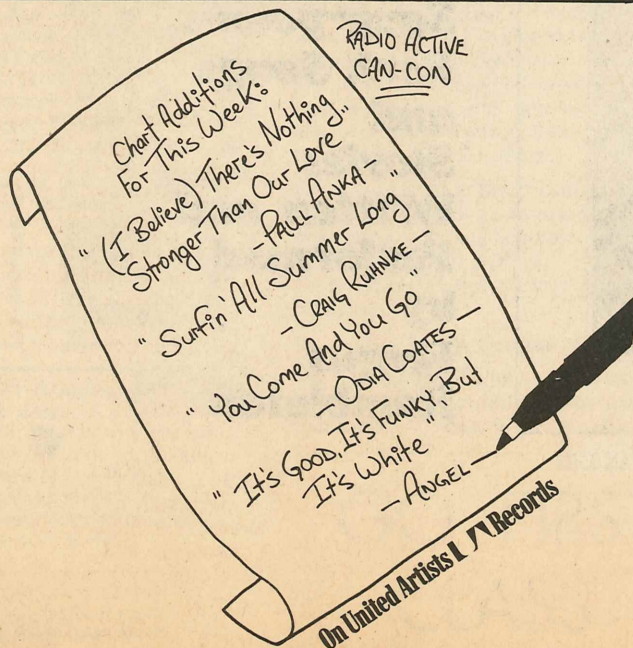 RADIO ACTIVE
CAN-CON
Chart Additions
For This Week:
"(I Believe) There's Nothing
Stronger Than Our Love"
- PAUL ANKA -
"Surfin' All Summer Long"
- CRAIG RUHNKE -
"You Come And You Go"
- ODIA COATES -
"It's Good, It's Funky But
It's White"
- ANGEL -
On United Artists UA Records